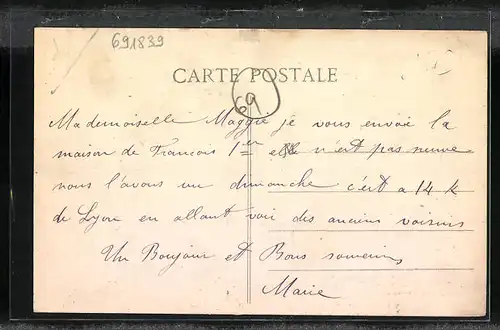 691839
CARTE POSTALE
69
Mademoiselle Maggie je vous envoie la
maison de Francois 1er elle n'est pas neuve
nous l'avons vu dimanche c'est a 14 k
de Lyon en allant voir des anciens voisins
Un Bonjour et Bons souvenirs
Marie